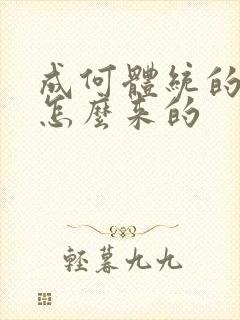 成何體統的
怎麼來的
輕暮九九